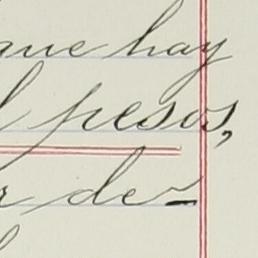 que hay
pesos,
de-